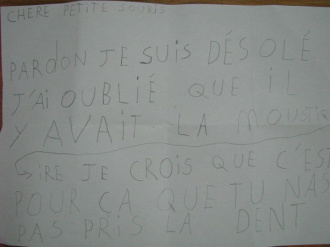 CHERE PETITE SOURIS
PARDON JE SUIS DÉSOLÉ
J'AI OUBLIÉ QUE IL
Y AVAIT LA MOUSTIQ
IRE JE CROIS QUE C'EST
POUR ÇA QUE TU NAS
PAS PRIS LA DENT